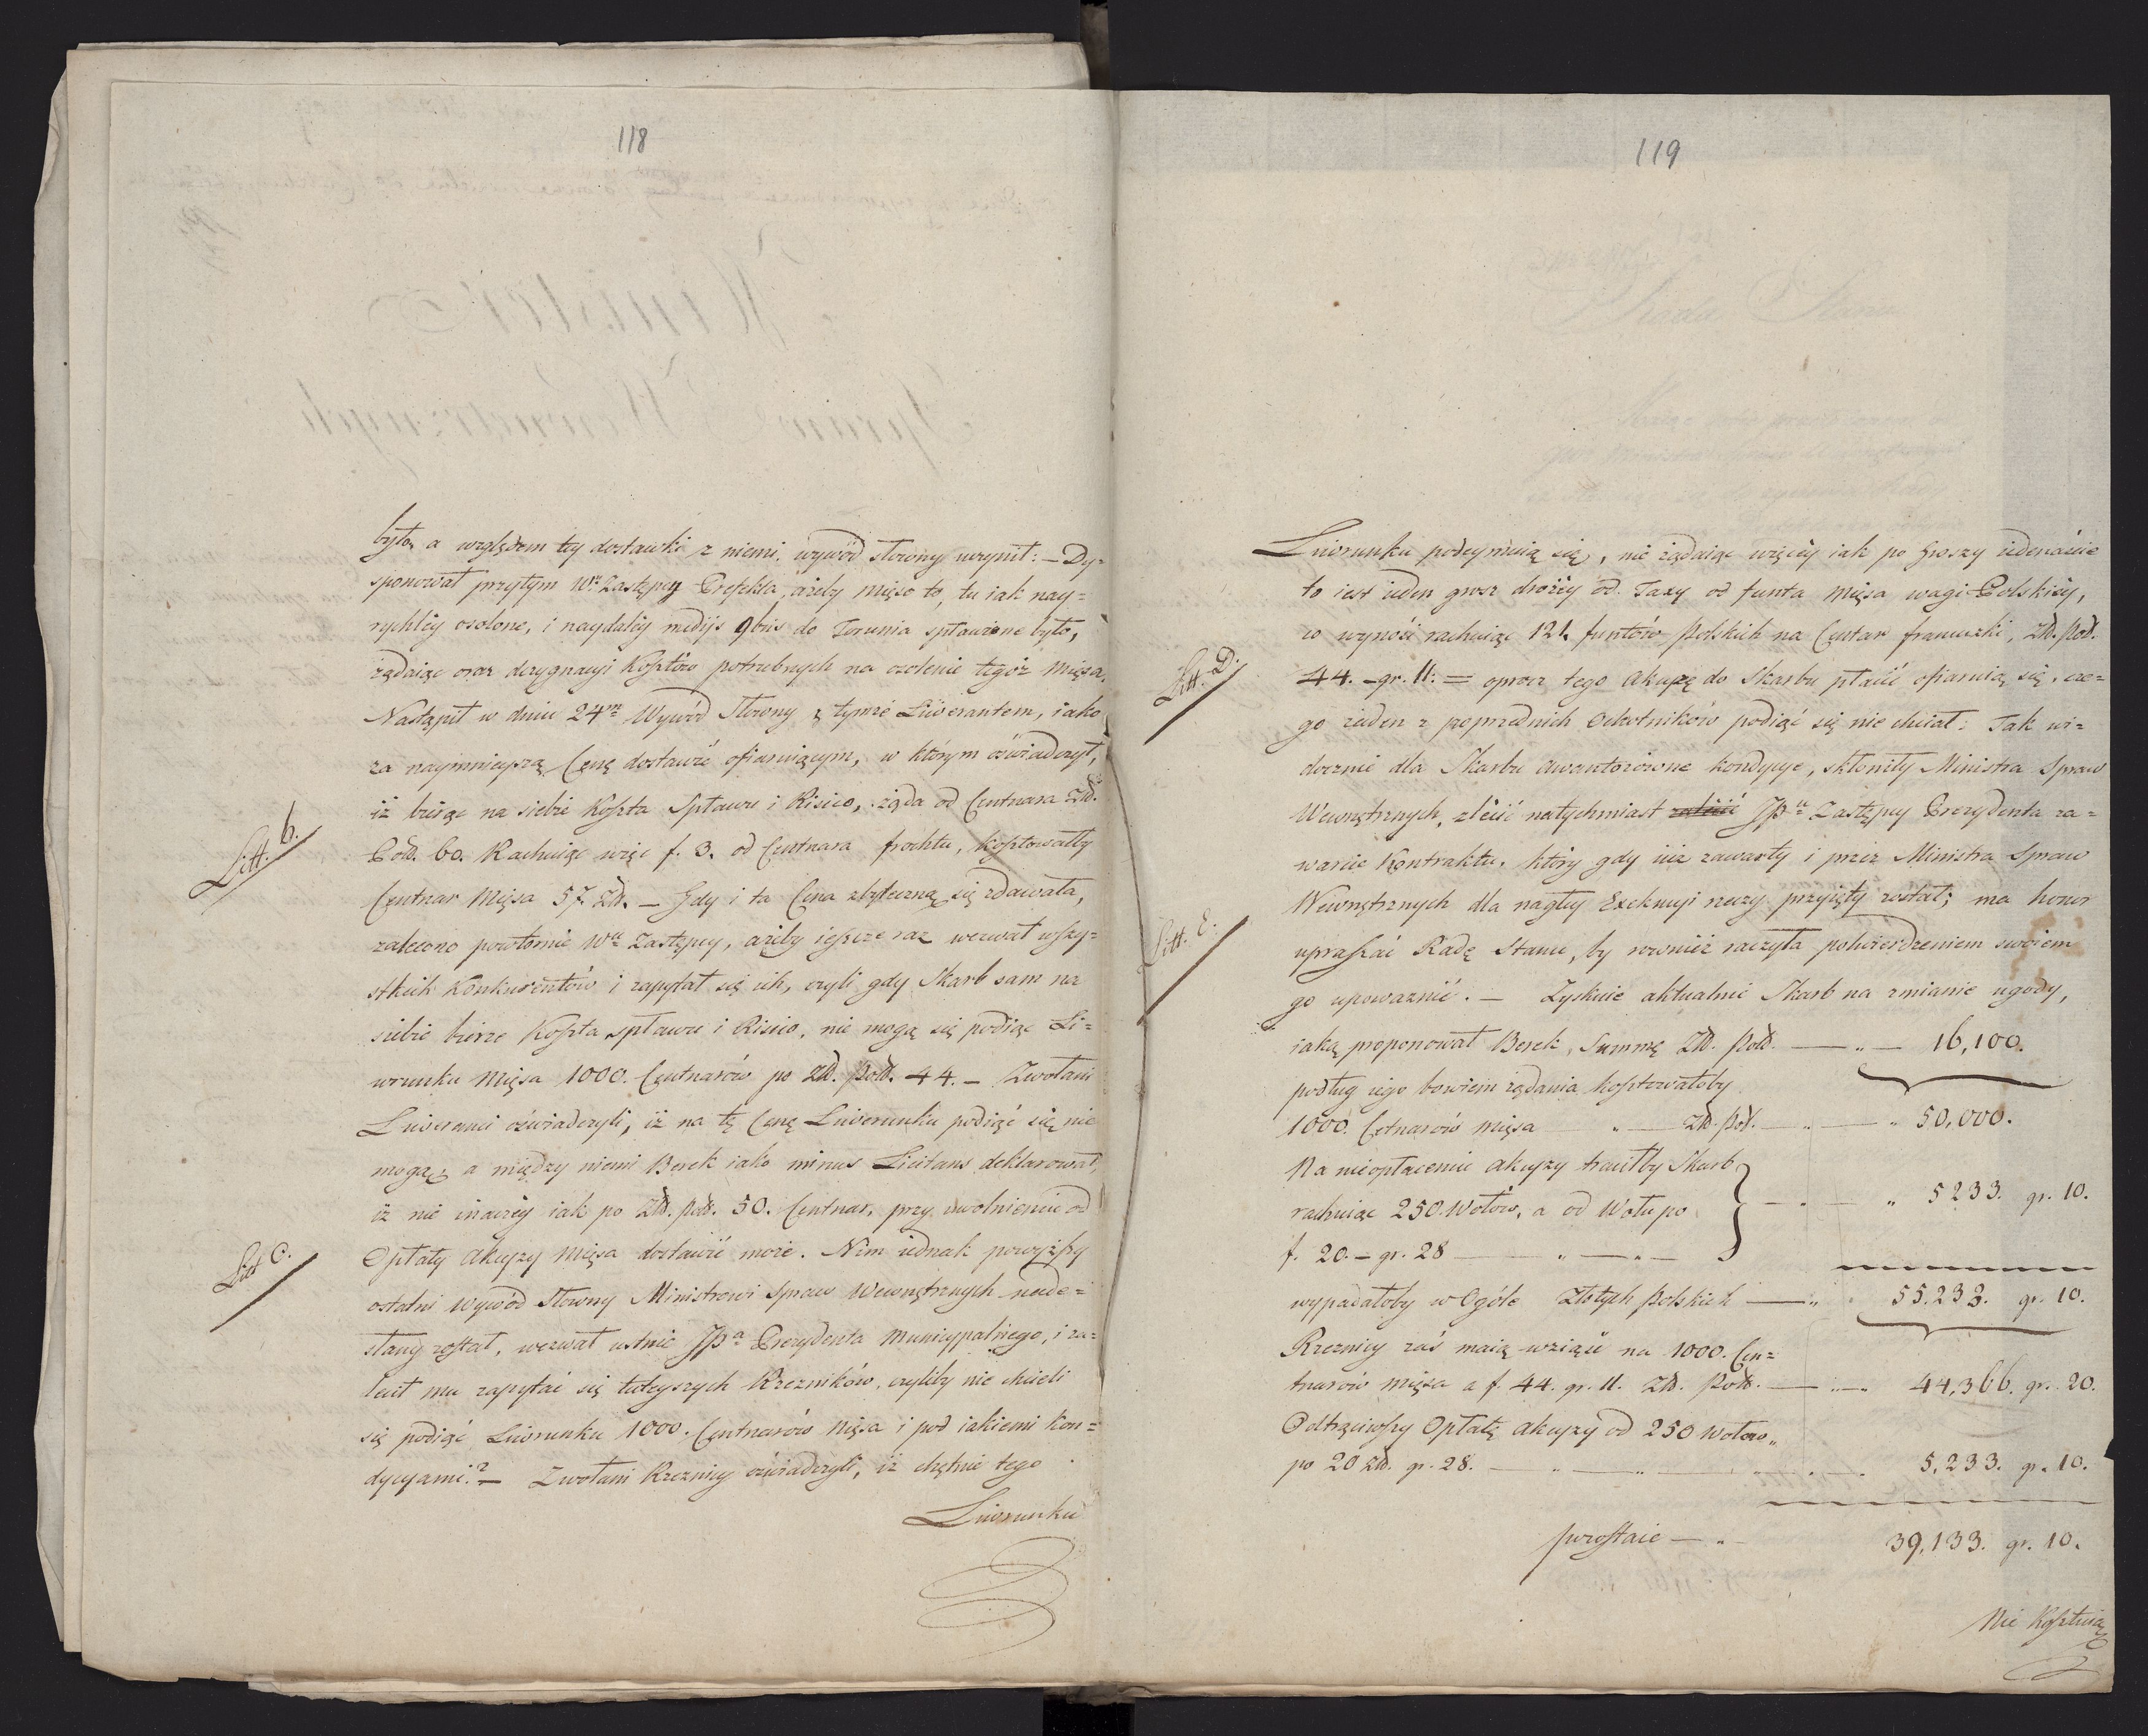 118
było, a względem tey dostawki z niemi wywód słowny uczynił: — Dy=
sponował przytym Wu Zastępcy Prefekta, ażeby mięso to, tu iak nay=
rychley osolone, i naydaley medijs 9bris do Torunia spławione było,
żądaiąc oraz dezygnacyi Kosztów potrzebnych na osolenie tegoż mięsa.
Nastąpił w dniu 24m Wywód Słowny z tymże Liwerantem, iako
za naymnieyszą Cenę dostawić ofiaruiącym, w którym oświadczył,
iż biorąc na siebie Koszta Spławu i Risico, żąda od Centnara Zł.
Litt. b.
Pol. 60. Rachuiąc więc f. 3. od Centnara frochtu, kosztowałby
Centnar Mięsa 57. Zł. — Gdy i ta Cena zbyteczną się zdawała,
zalecono powtórnie Wu Zastępcy, ażeby ieszcze raz wezwał wszy=
stkich Konkurentów i zapytał się ich, czyli gdy Skarb sam na
siebie bierze Koszta spławu i Risico, nie mogą się podiąc Li=
werunku Mięsa 1000. Centnarów po Zł. Pol. 44. — Zwołani
Liweranci oświadczyli, iż na tę Cenę Liwerunku podiąć się nie
mogą, a między niemi Berek iako minus Licitans deklarował,
iż nie inaczey iak po Zł. Pol. 50. Centnar, przy uwolnieniu od
Litt C.
Opłaty akcyzy Mięsa dostawić może. Nim iednak powyższy
ostatni Wywód Słowny Ministrowi Spraw Wewnętrznych nade=
słany został, wezwał ustnie JPa Prezydenta Municypalnego, i za=
lecił mu zapytać się tuteyszych Rzezników, czyliby nie chcieli
się podiąć Liwerunku 1000. Centnarów Mięsa i pod iakiemi kon=
dycyami? — Zwołani Rzeznicy oświadczyli, iż chętnie tego
Liwerunku
119
Liwerunku podeymuią się, nie żądaiąc więcey iak po Groszy iedenaście
to iest ieden grosz drożey od Taxy od funta Mięsa wagi Polskiey,
co wynosi rachuiąc 121. funtów Polskich na Centar francuzki, Zł. Pol.
Litt. D.
44. — gr. 11: = oprocz tego Akcyzę do Skarbu płacić ofiaruią się, cze=
go żaden z poprzednich Ochotników podiąć się nie chciał: Tak wi=
docznie dla Skarbu awantażowne kondycye, skłoniły Ministra Spraw
Wewnętrznych, zlecić natychmiast JPu Zastępcy Prezydenta za=
warcie Kontraktu, który gdy iuż zawarty i przez Ministra Spraw
Litt. E.
Wewnętrznych dla nagłey Exekucyi rzeczy przyięty został; ma honor
upraszać Radę Stanu, by rownież raczyła potwierdzeniem swoiem
go upoważnić. — Zyskuie aktualnie Skarb na zmianie ugody,
iaką proponował Berek, Summę Zł. Pol. — „ — 16,100.
podług iego bowiem żądania kosztowałoby
1000. Cetnarów mięsa „ — Zł. Pol. — „ — „ 50,000.
Na nieopłaceniu akcyzy traciłby Skarb
rachuiąc 250. Wołów, a od Wołu po — „ — „ 5233. gr. 10.
f. 20. — gr. 28 — „ — „ —
wypadałoby w Ogóle Złotych Polskich — „ 55.233. gr. 10.
Rzeznicy zaś maią wziąść na 1000. Cen=
tnarów mięsa a f. 44. gr. 11. Zł. Pol. — „ — „ 44,366. gr. 20.
Odtrąciwszy Opłatę akcyzy od 250 Wołow „
po 20 Zł. gr. 28. — „ — „ — „ — 5,233. gr. 10.
pozostaie — „ — 39,133. gr. 10.
Nie Kosztuią